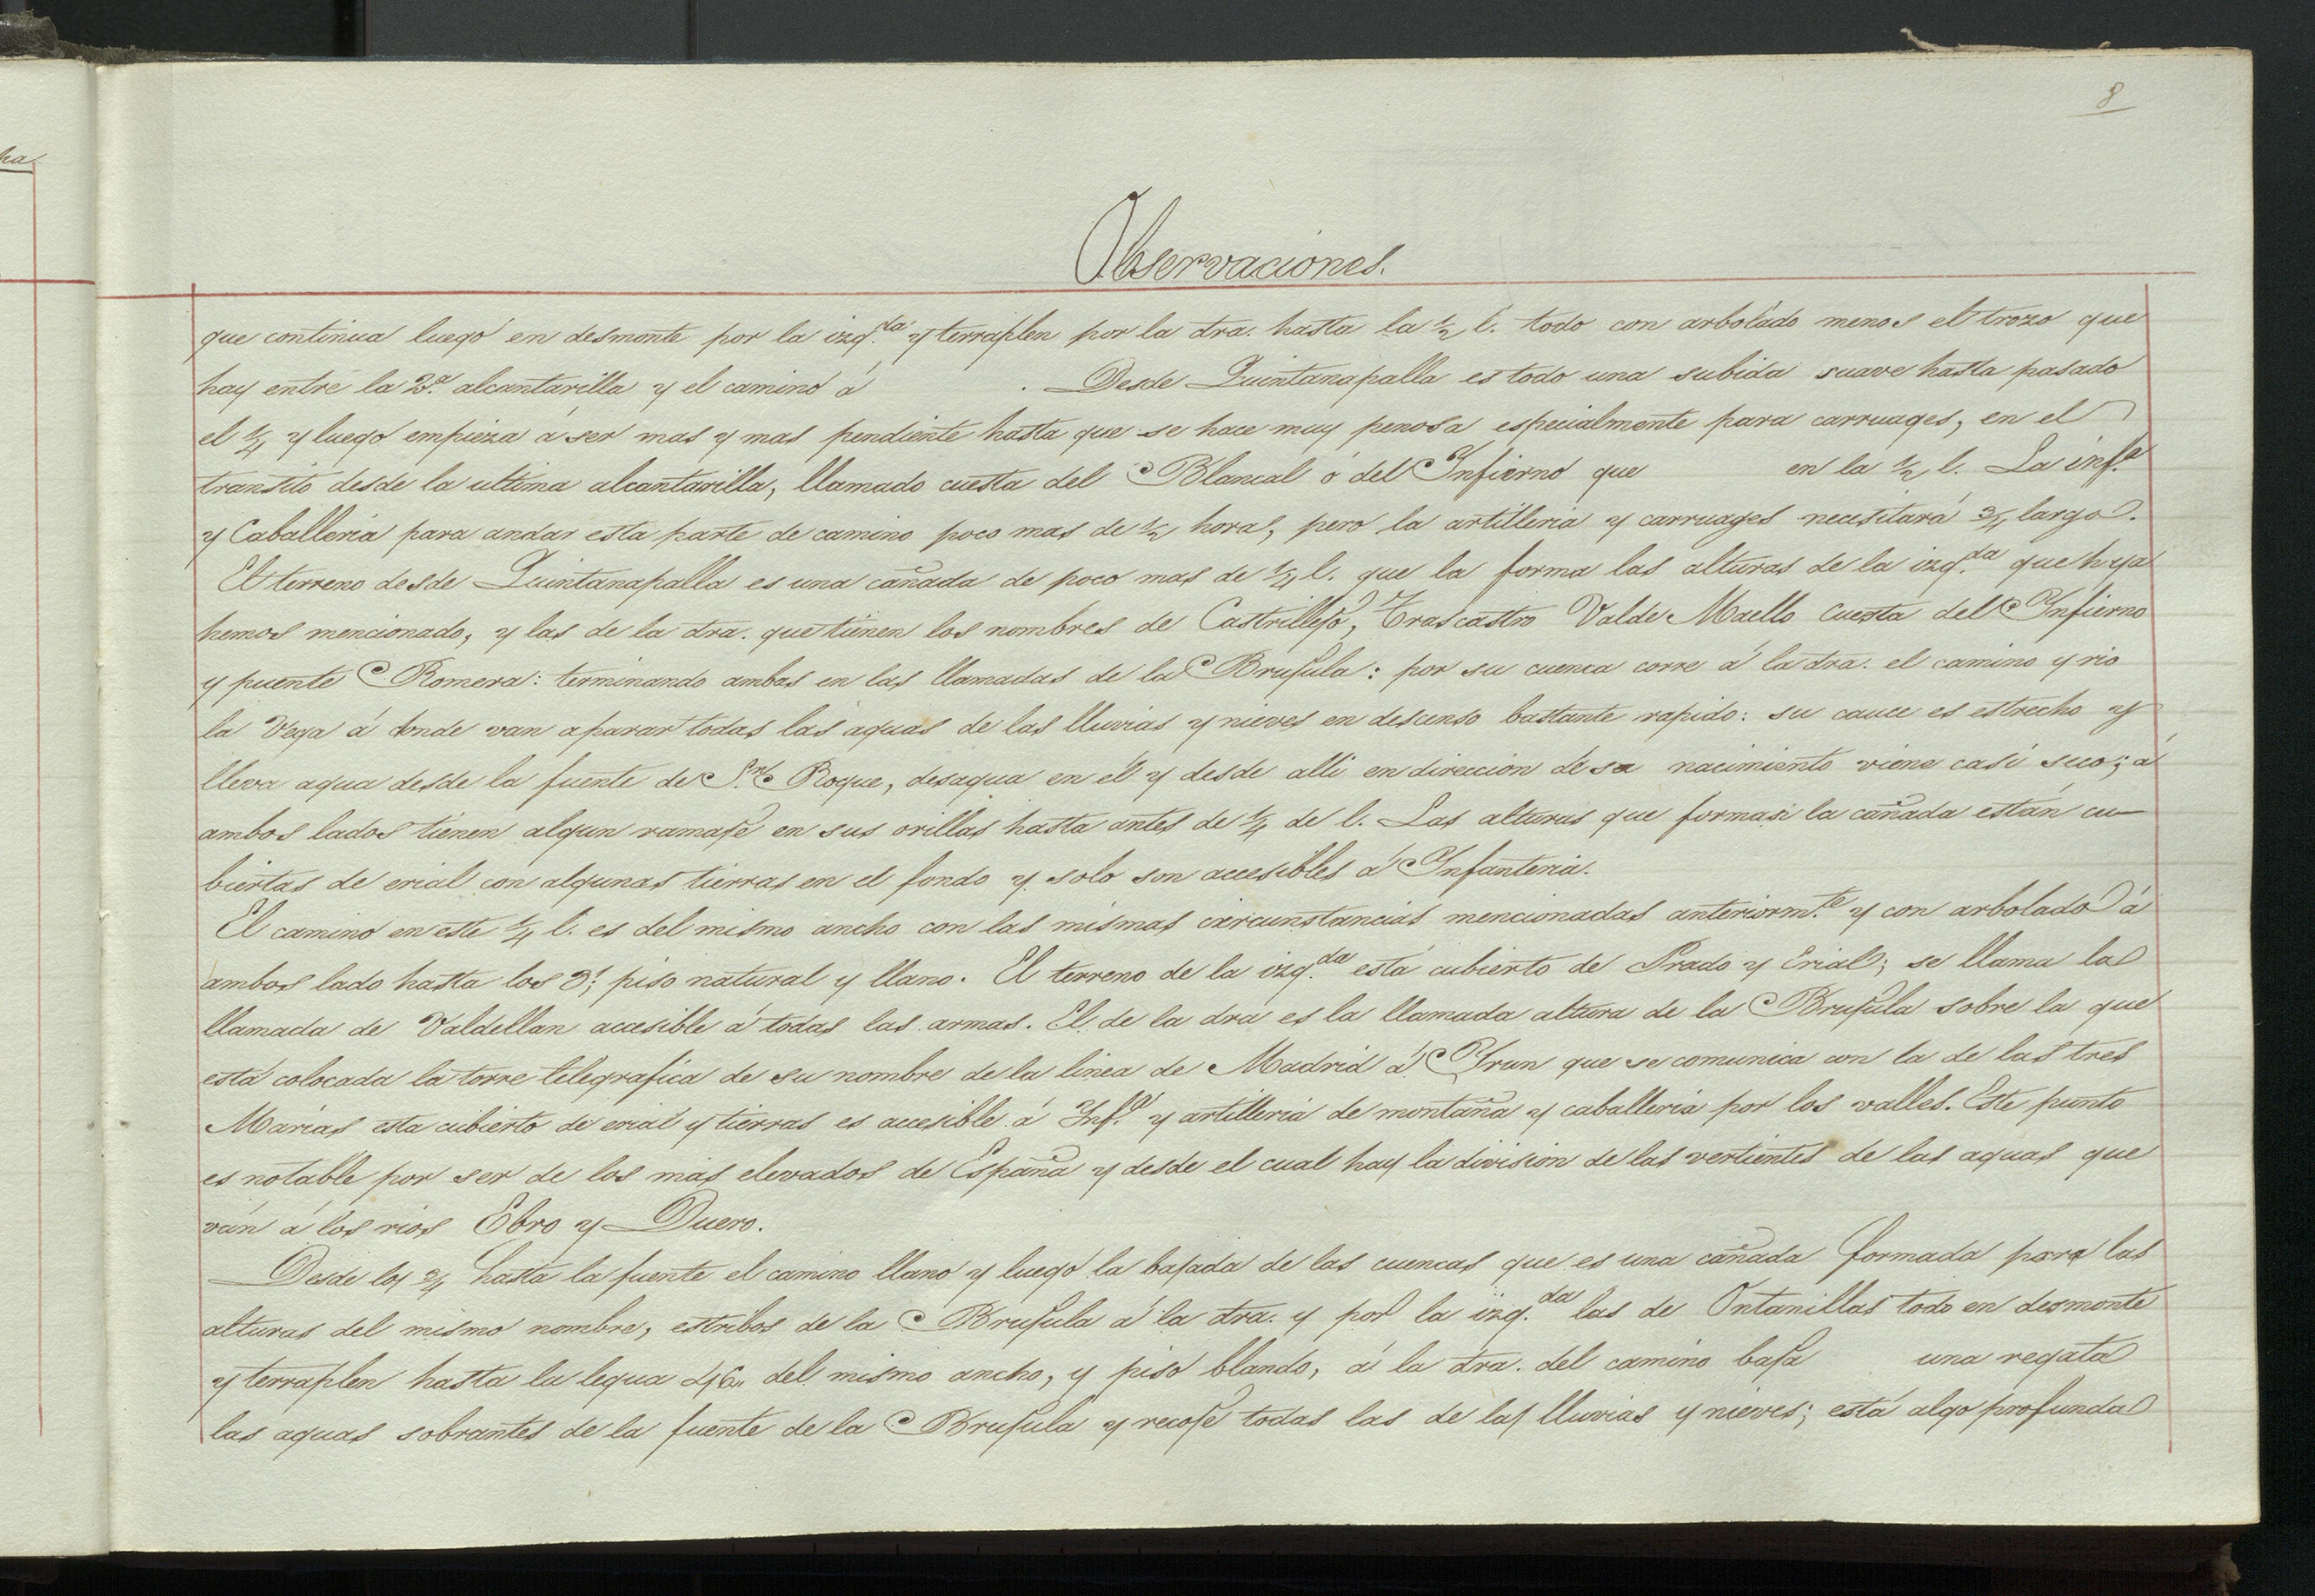 ha
8
Observaciones.
que continua luego en desmonte por la izq.da y terraplen por la dra. hasta la 1/2 l. todo con arbolado menos el trozo que
hay entre la 2.a alcantarilla y el camino á . Desde Quintanapalla es todo una subida suave hasta pasado
el 1/4 y luego empieza á ser mas y mas pendiente hasta que se hace muy penosa especialmente para carruages, en el
transito desde la ultima alcantarilla, llamado cuesta del Blancal ó del Infierno que en la 1/2 l. La inf.a
y Caballeria para andar esta parte de camino poco mas de 1/2 hora, pero la artilleria y carruages necesitará 3/4 largo.
El terreno desde Quintanapalla es una cañada de poco mas de 1/2 l. que la forma las alturas de la izq.da que h ya
hemos mencionado, y las de la dra. que tienen los nombres de Castrillejo, Trascastro Valde Maello Cuesta del Infierno
y puente Romera: terminando ambas en las llamadas de la Brujula: por su cuenca corre á la dra. el camino y rio
la Vega á donde van aparar todas las aguas de las lluvias y nieves en descenso bastante rapido: su cauce es estrecho y
lleva agua desde la fuente de S.n Roque, desagua en él y desde alli en direccion de su nacimiento viene casi seco; á
ambos lados tienen algun ramaje en sus orillas hasta antes de 1/4 de l. Las alturas que forman la cañada están cu-
biertas de erial con algunas tierras en el fondo y solo son accesibles á Infanteria.
El camino en este 1/4 l. es del mismo ancho con las mismas circunstancias mencionadas anteriorm.te y con arbolado á
ambos lado hasta los piso natural y llano. El terreno de la izq.da está cubierto de Prado y Erial; se llama la
llamada de Valdellan accesible á todas las armas. El de la dra es la llamada altura de la Brujula sobre la que
está colocada la torre telegrafica de su nombre de la linea de Madrid á Irun que se comunica con la de las tres
Marias esta cubierto de erial y tierras es accesible á Inf.a y artilleria de montaña y caballeria por los valles. Este punto
es notable por ser de los mas elevados de España y desde el cual hay la division de las vertientes de las aguas que
ván á los rios Ebro y Duero.
Desde los 3/4 hasta la fuente el camino llano y luego la bajada de las cuencas que es una cañada formada para las
alturas del mismo nombre, estribos de la Brujula á la dra. y por la izq.da las de Ontanillas todo en desmonte
y terraplen hasta la legua 46. del mismo ancho, y piso blando, á la dra. del camino baja una regata
las aguas sobrantes de la fuente de la Brujula y recoje todas las de las lluvias y nieves; está algo profunda